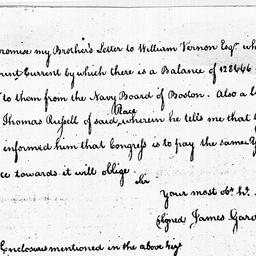 promise my Brother's Letter to William Vernon Esqr. wh
Current by which there is a Balance of
to them from the Navy Board of Boston. Also a
Place
Thomas Russell of said, wherein he tells me that
informed him that Congress is to pay the same.
towards it will oblige
Sir
Your most obt.
Signed James Gard
Enclosures mentioned in the above